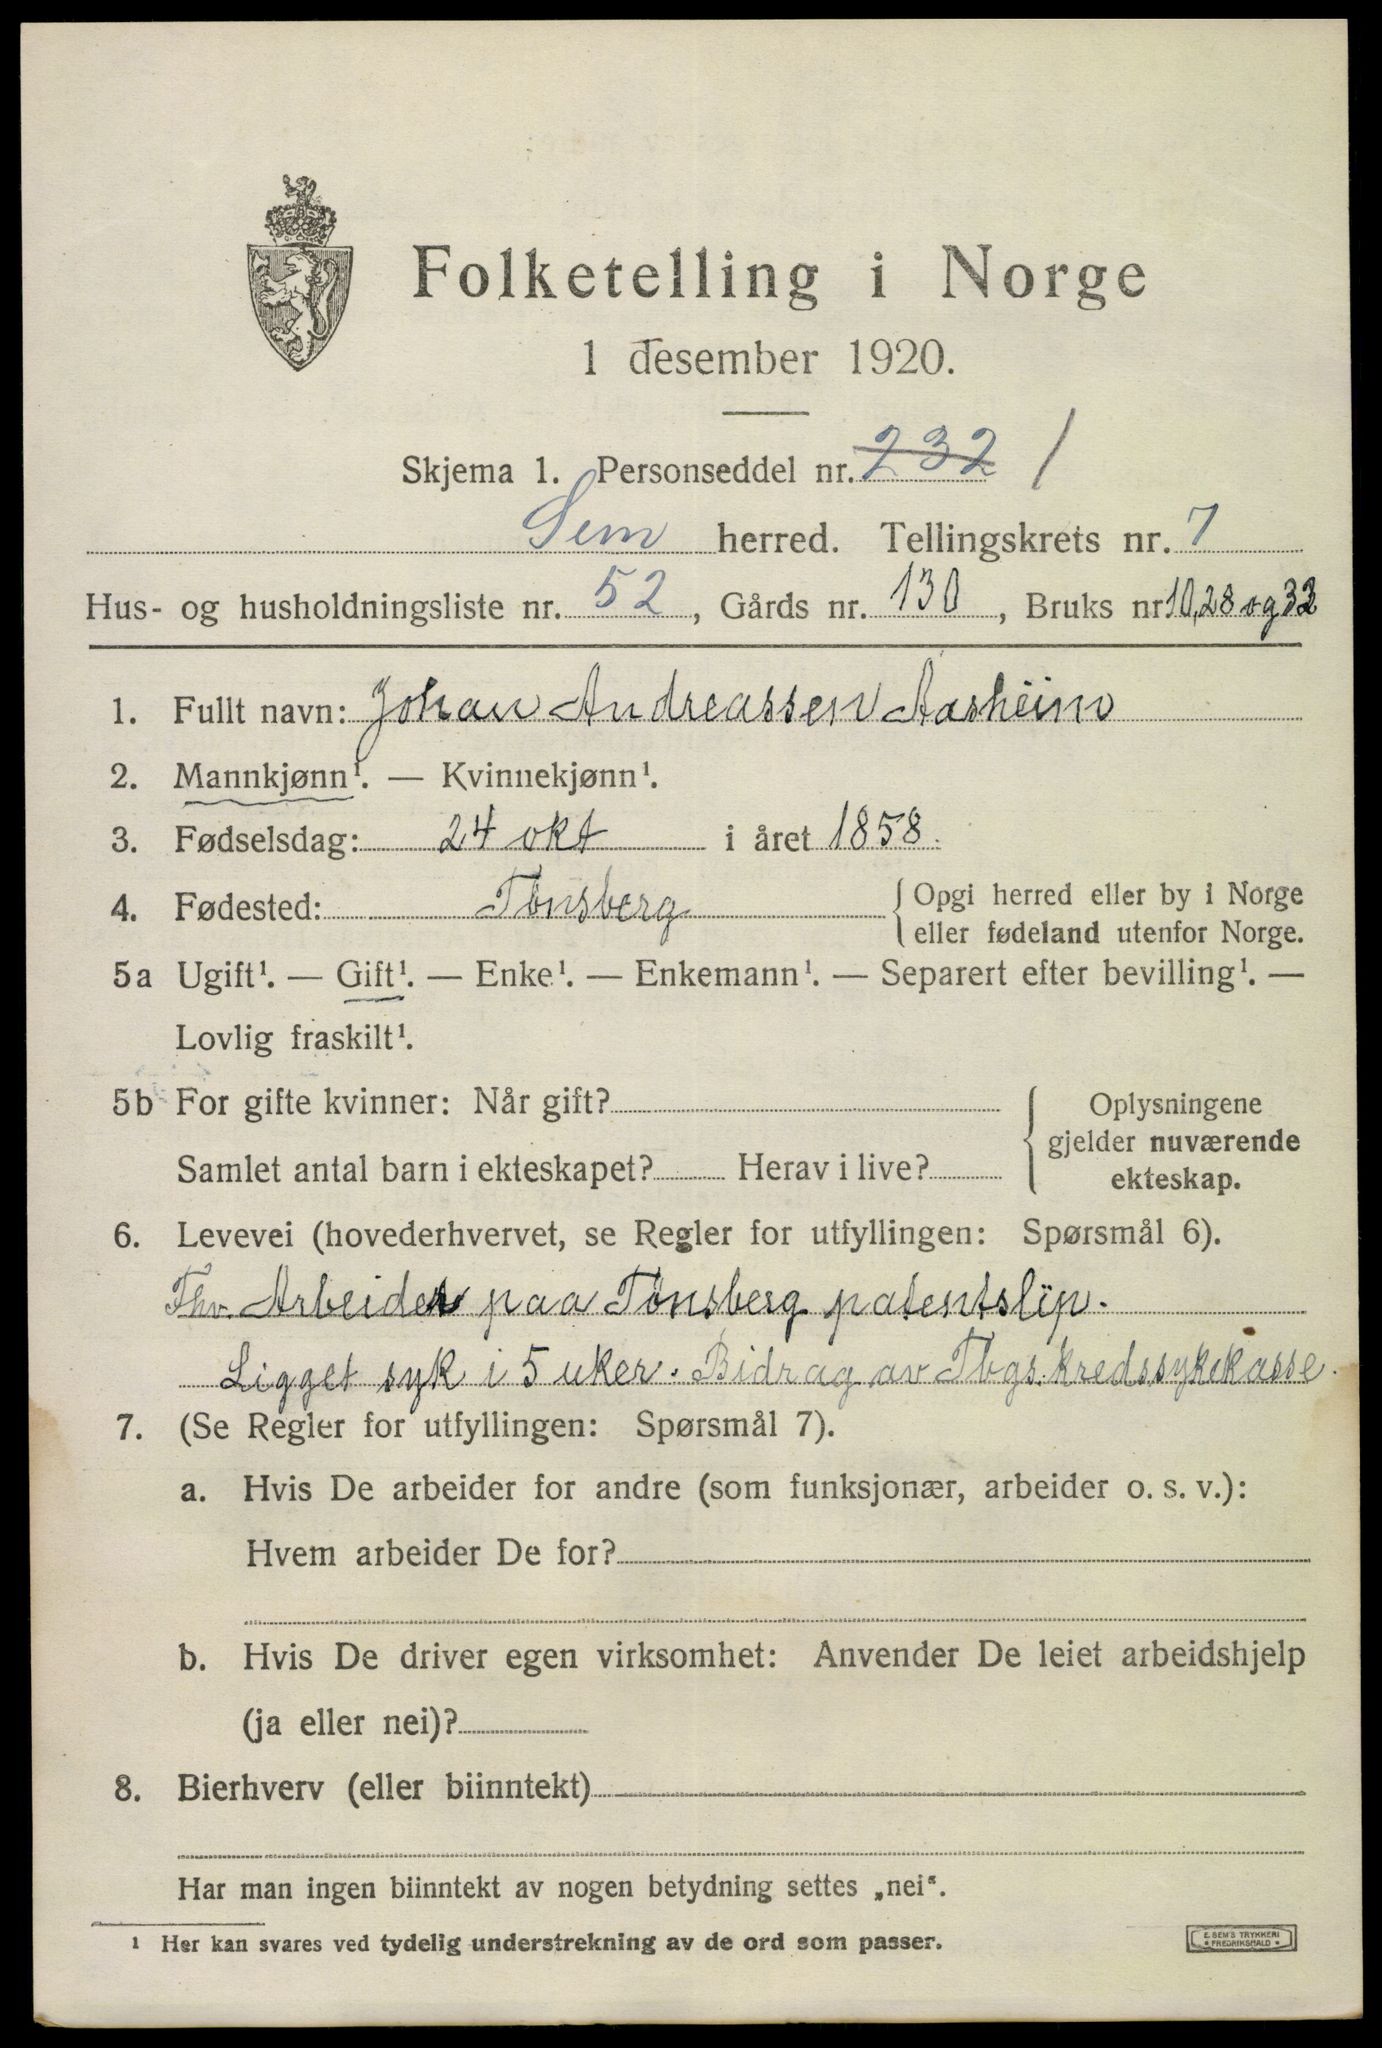 Folketelling i Norge
1 desember 1920.
Skjema 1. Personseddel nr. 232 1
Sem herred. Tellingskrets nr. 7
Hus- og husholdningsliste nr. 52, Gårds nr. 130, Bruks nr 10, 28 og 33
1. Fullt navn: Johan Andreassen Aasheim
2. Mannkjønn¹. — Kvinnekjønn¹.
3. Fødselsdag: 24 okt i året 1858.
4. Fødested: Tønsberg { Opgi herred eller by i Norge
eller fødeland utenfor Norge.
5a Ugift¹. — Gift¹. — Enke¹. — Enkemann¹. — Separert efter bevilling¹. —
Lovlig fraskilt¹.
5b For gifte kvinner: Når gift? { Oplysningene
gjelder nuværende
Samlet antal barn i ekteskapet? Herav i live?
ekteskap.
6. Levevei (hovederhvervet, se Regler for utfyllingen: Spørsmål 6).
Fhv. Arbeider paa Tønsberg patentslip.
Ligget syk i 5 uker. Bidrag av Tbgs. kredssykekasse.
7. (Se Regler for utfyllingen: Spørsmål 7).
a. Hvis De arbeider for andre (som funksjonær, arbeider o. s. v.):
Hvem arbeider De for?
b. Hvis De driver egen virksomhet: Anvender De leiet arbeidshjelp
(ja eller nei)?
8. Bierhverv (eller biinntekt)
Har man ingen biinntekt av nogen betydning settes „nei".
¹ Her kan svares ved tydelig understrekning av de ord som passer.
E. SEM'S TRYKKERI
• FREDRIKSHALD •